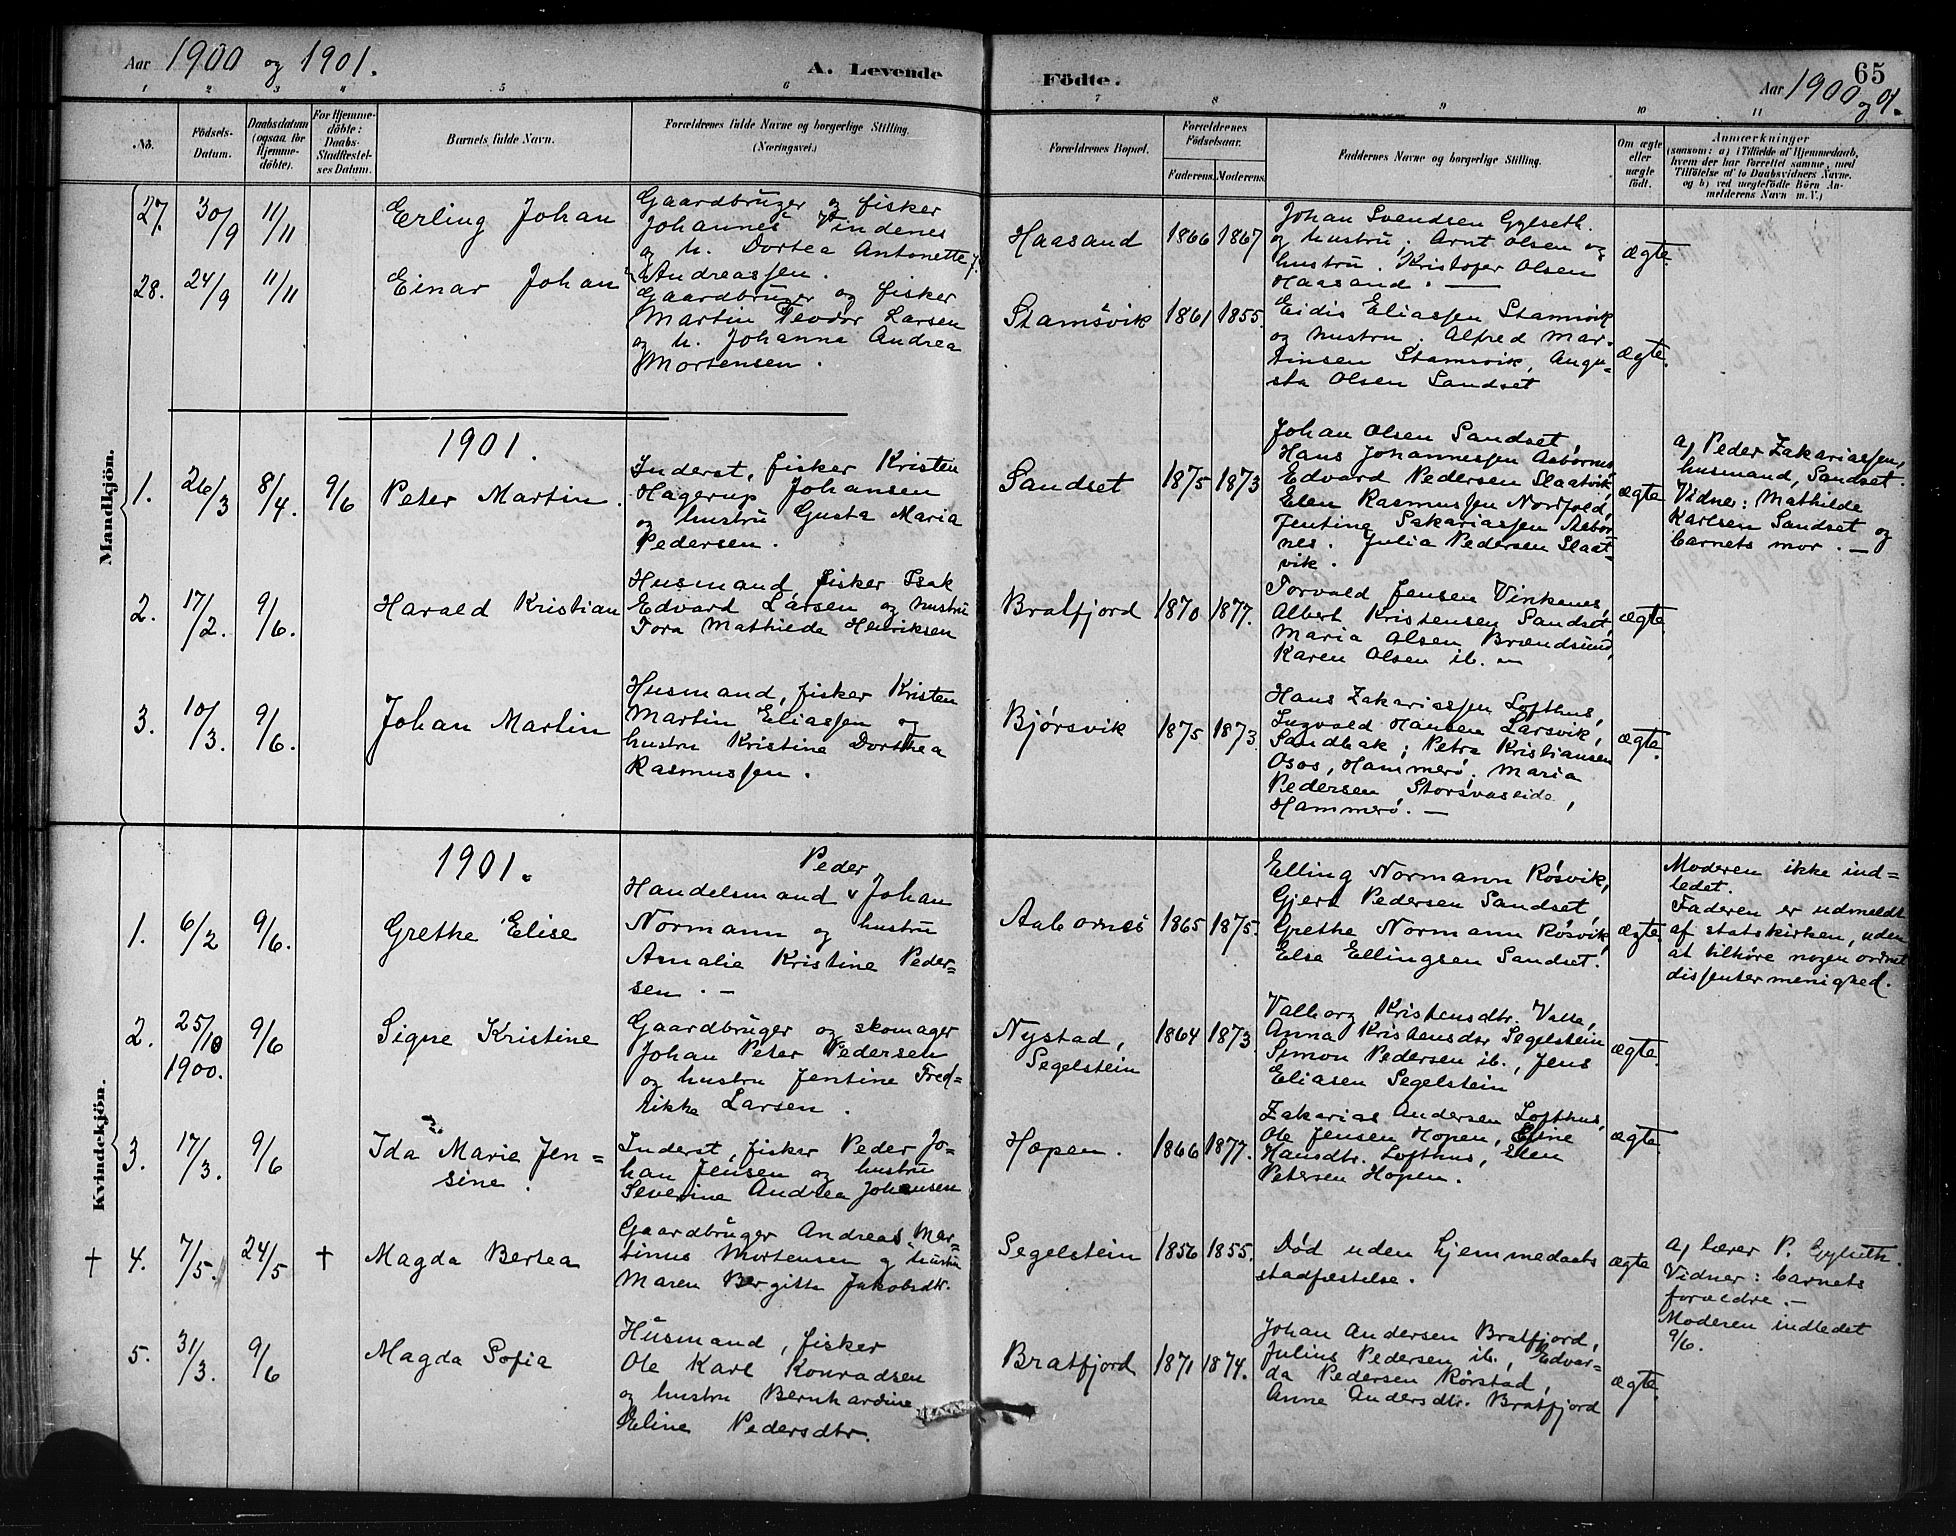 Aar 1900 og 1901.
A. Levende
Födte.
65
Aar 1900 og 01.
1 2 3 4 5 6 7 8 9 10 11
No.
Födsels-
Datum.
Daabsdatum
(ogsaa for
Hjemme-
döbte).
For Hjemme-
döbte:
Daabs-
Stadfæstel-
ses Datum.
Barnets fulde Navn.
Forældrenes fulde Navne og borgerlige Stilling.
(Næringsvei.)
Forældrenes Bopæl.
Forældrenes
Födselsaar.
Faderens. Moderens.
Faddernes Navne og borgerlige Stilling.
Om ægte
eller
uægte
födt.
Anmærkninger
(saasom: a) i Tilfælde af Hjemmedaab,
hvem der har forrettet samme, med
Tilföielse af to Daabsvidners Navne,
og b) ved uægtefödte Börn An-
melderens Navn m. V.)
Mandkjön.
27. 30/9 11/11 Erling Johan
Gaardbruger og fisker
Johannes Vindenes
og h. Dortea Antonette
Andreassen.
Haasand 1866 1867
Johan Svendsen Gylseth.
og hustru. Arnt Olsen og
hustru. Kristofer Olsen
Haasand. —
ægte.
28. 24/9 11/11 Einar Johan
Gaardbruger og fisker
Martin Teodor Larsen
og h. Johanna Andrea
Mortensen.
Stamsvik 1861 1855.
Eidis Eliassen Stamsvik
og hustru. Alfred Mar-
tinsen Stamsvik, Augu-
sta Olsen Sandset
ægte.
1901.
1. 26/3 8/4. 9/6 Peter Martin.
Inderst, fisker Kristen
Hagerup Johansen
og hustru Gusta Maria
Pedersen.
Sandset 1875 1873
Johan Olsen Sandset,
Hans Johannessen Asbørnes
Edvard Pedersen Slaatvik,
Elen Rasmussen Norfold,
Jentine Sakariassen Asbør-
nes. Julia Pedersen Slaat-
vik.
ægte
a, Peder Zakariassen,
husmand, Sandset.
Vidner: Mathilde
Karlsen Sandset og
barnets mor. —
2. 17/2. 9/6. Harald Kristian
Husmand, fisker Isak
Edvard Larsen og hustru
Tora Mathilde Henriksen
Bratfjord 1870 1877.
Torvald Jensen Vinkenes,
Albert Kristensen Sandset,
Maria Olsen Brændsund,
Karen Olsen ib. —
ægte.
3. 10/3. 9/6. Johan Martin
Husmand, fisker Kristen
Martin Eliassen og
hustru Kristine Dorthea
Rasmussen.
Bjørsvik 1875 1873.
Hans Zakariassen Lofthus,
Ingvald Hansen Larsvik,
Sandbak; Petra Kristiansen
Osos, Hammerø, Maria
Pedersen Storsvaseide,
Hammerø. —
ægte.
Kvindekjön.
1901.
1. 6/2 9/6. Grethe Elise
Peder
Handelsmand v Johan
Normann og hustru
Amalie Kristine Peder-
sen. —
1865 1875.
Elling Normann Røsvik,
Gjert Pedersen Sandset,
Grethe Normann Røsvik,
Else Ellingsen Sandset.
ægte.
Moderen ikke ind=
ledet.
Faderen er udmeldt
af statskirken, uden
at tilhøre nogen ordnet
dissentermenighed.
2. 25/10 9/6 Signe Kristine
1900.
Gaardbruger og skomager
Johan Peter Pedersen
og hustru Jentine Fred=
rikke Larsen.
Nystad,
Segelstein
1864 1873.
Valborg Kristensdtr. Valle,
Anna Kristensdtr Segelstein
Simon Pedersen ib., Jens
Eliasen Segelstein
ægte.
3. 17/3. 9/6 Ida Marie Jen=
sine.
Inderst, fisker Peder Jo-
han Jensen og hustru
Severine Andrea Johansen
Hopen. 1866 1877.
Zakarias Andersen Lofthus,
Ole Jensen Hopen, Eline
Hansdtr. Lofthus, Elen
Petersen Hopen.
ægte.
† 4. 7/5. 24/5 † Magda Bertea
Gaardbruger Andreas Mar-
tinus Mortensen og hustru
Maren Bergitta Jakobsdtr.
Segelstein 1856 1855.
Død uden hjemmedaabs
stadfæstelse.
ægte
a, lærer P. Gylseth.
Vidner: barnets
forældre. —
Moderen indledet
9/6.
5. 31/3. 9/6 Magda Sofia
Husmand, fisker
Ole Karl Konradsen
og hustru Bernhardine
Eline Pedersdtr.
Bratfjord 1871 1874.
Johan Andersen Bratfjord,
Julius Pedersen ib., Edvar-
da Pedersen Rørstad,
Anne Andersdtr. Bratfjord
ægte.